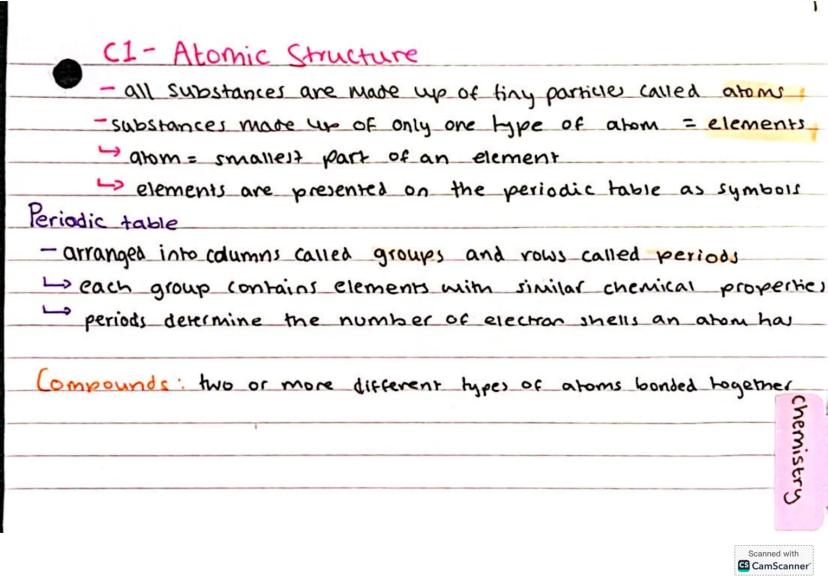 1
C1 - Atomic Structure
- all substances are made up of tiny particles called atoms
- substances made up of only one type of atom = elements
↳ atom = smallest part of an element
↳ elements are presented on the periodic table as symbols
Periodic table
- arranged into columns called groups and rows called periods
↳ each group contains elements with similar chemical properties
↳ periods determine the number of electron shells an atom has
Compounds: two or more different types of atoms bonded together
Chemistry
Scanned with
CS CamScanner